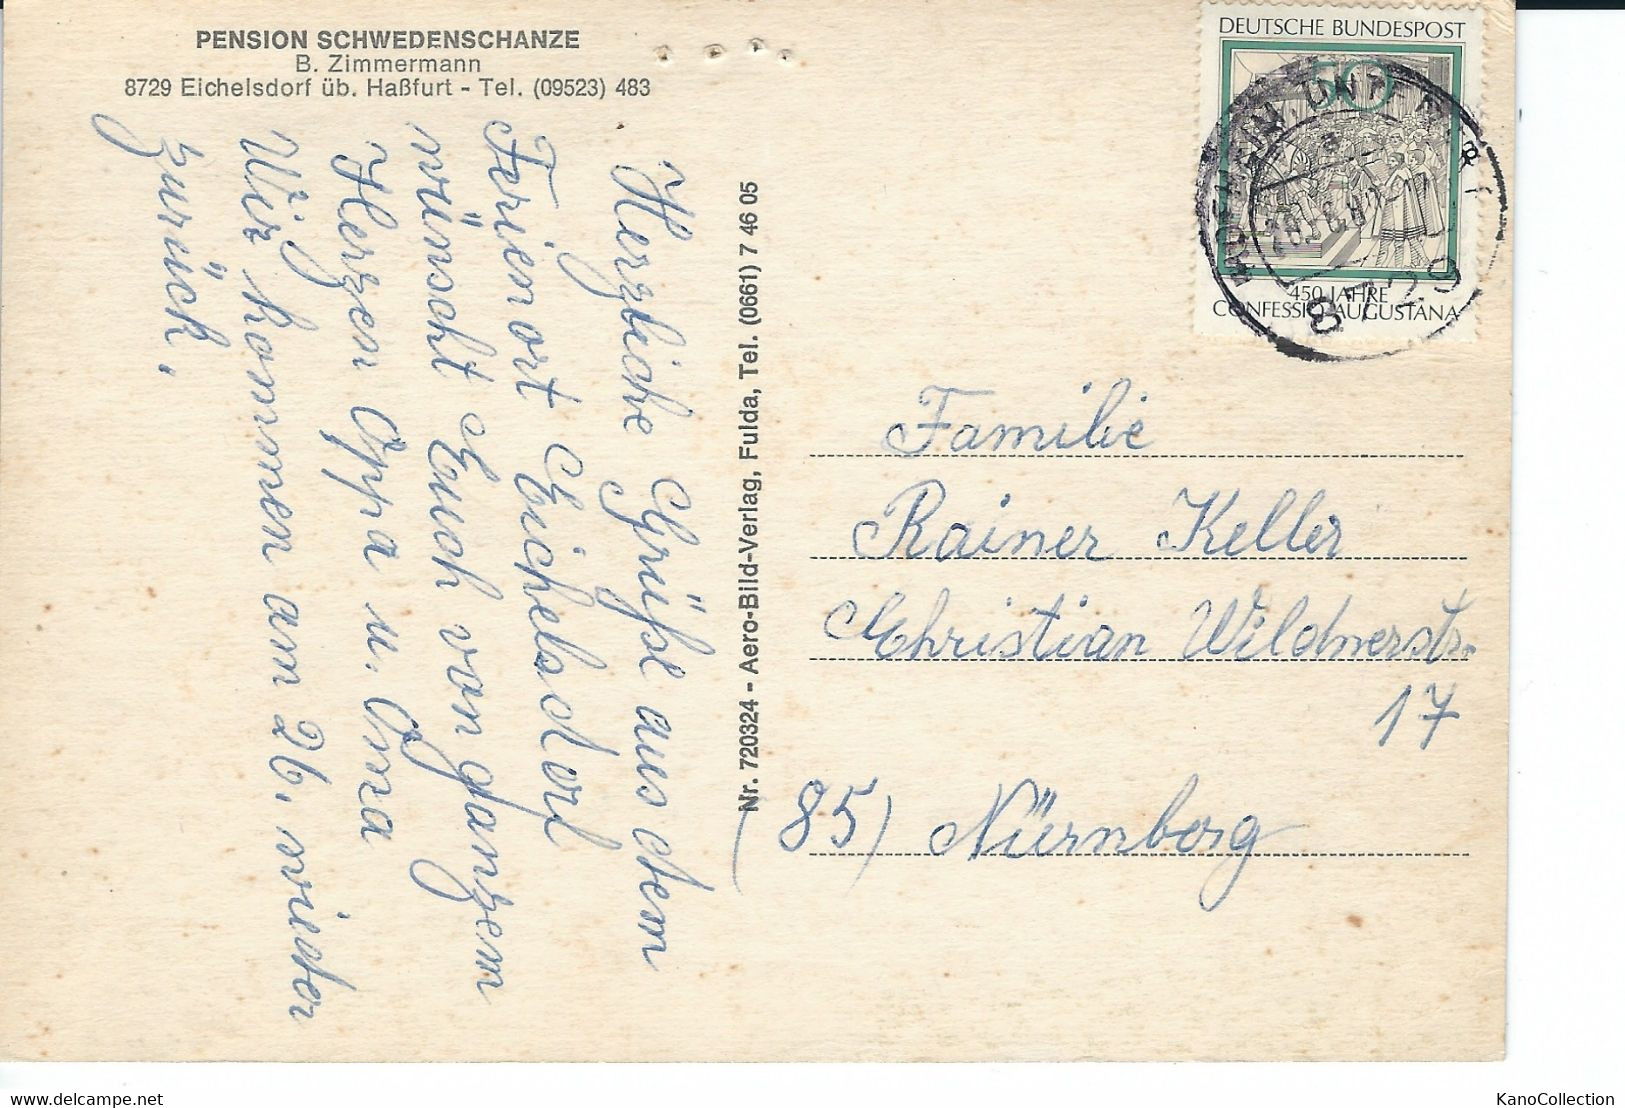 PENSION SCHWEDENSCHANZE
B. Zimmermann
8729 Eichelsdorf üb. Haßfurt - Tel. (09523) 483
Herzliche Grüße aus dem
Ferienort Eichelsdorf
wünscht Euch von ganzem
Herzen Oppa u. Oma
Wir kommen am 26. wieder
zurück.
Nr. 720324 - Aero-Bild-Verlag, Fulda, Tel. (0661) 7 46 05
DEUTSCHE BUNDESPOST
50
450 JAHRE
CONFESSIO AUGUSTANA
8729
Familie
Rainer Keller
Christian Wildnerstr.
17
85) Nürnberg
www.delcampe.net
KanoCollection